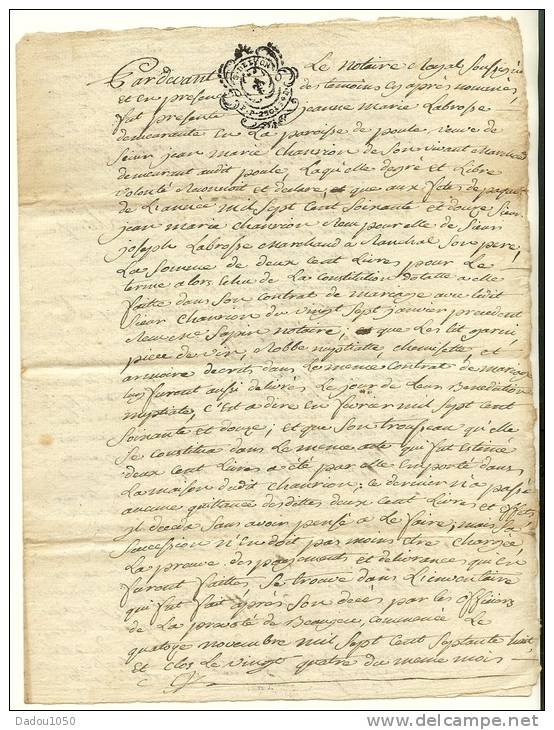 Pardevant Le notaire Royal Soussigné
et en presence des temoins cy après nommés,
fut presente jeanne Marie Labrosse
demeurante en La paroisse de poule, veuve de
Sieur jean marie Chanrion de Son vivant Marchand
demeurant audit poule, Laquelle de gré et Libre
volonté Reconnoit et declare, que aux fetes de paques
de L'année Mil Sept Cent Soixante et douze Sieur
jean marie Chanrion Reçu pour elle de Sieur
joseph Labrosse Marchand a Ranchal Son pere,
La Somme de deux Cent Livres pour Le
terme a lors Echu de La Constitution dotalle a elle
faitte dans Son Contrat de mariage avec ledit
Sieur Chanrion du vingt Sept janvier precedent
Reçu me Sapin notaire, et que Les lit garni
piece de vin, Robbe nuptiale, Chemisette, et
armoire decrits dans Le meme Contrat de mariage
luy furent aussi delivrés Le jour de Leur Benediction
nuptiale, C'est a dire en fevrier mil Sept Cent
Soixante et douze; et que Son trousseau qu'elle
Se Constitua dans Le meme acte qui fut Estimé
deux Cent Livres a été par elle Emporté dans
La maison dudit Chanrion; Ce dernier n'a passé
aucune quittance des dittes deux Cent Livres et effets,
il deceda Sans avoir pensé a Le faire; mais Sa
Succession n'En doit pas moins etre Chargée
La preuve des payements et delivrances qui En
furent faittes Se trouve dans L'inventaire
qui fut fait après Son decès par les officiers
de La prevoté de Beaujeu, Commencé Le
quatorze novembre mil Sept Cent Septante huit
et Clos Le vingt quatre du meme mois
Dadou1050
delcampe.net